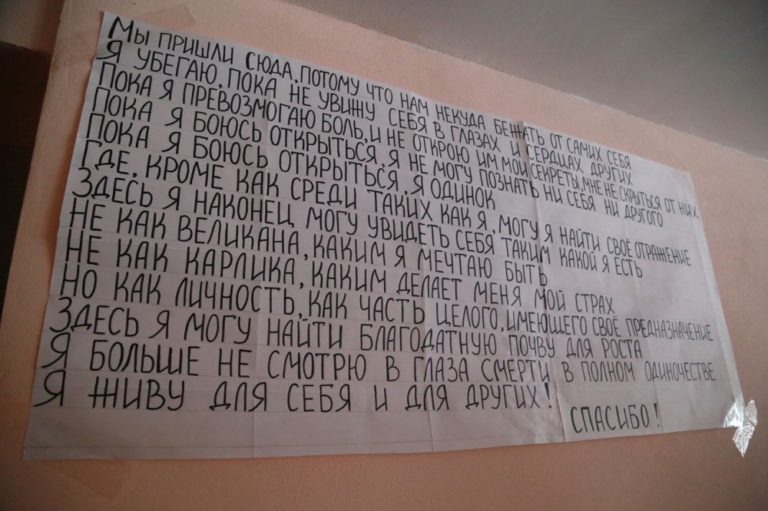 Мы пришли сюда, потому что нам некуда бежать от самих себя
Я убегаю, пока не увижу себя в глазах и сердцах других
Пока я превозмогаю боль, и не открою им мои секреты, мне не скрыться от них
Пока я боюсь открыться, я не могу познать ни себя ни другого
Пока я боюсь открыться, я одинок
Где, кроме как среди таких как я, могу я найти своё отражение
Здесь я наконец могу увидеть себя таким какой я есть
Не как великана, каким я мечтаю быть
Не как карлика, каким делает меня мой страх
Но как личность, как часть целого, имеющего своё предназначение
Здесь я могу найти благодатную почву для роста
Я больше не смотрю в глаза смерти в полном одиночестве
Я живу для себя и для других!
Спасибо!